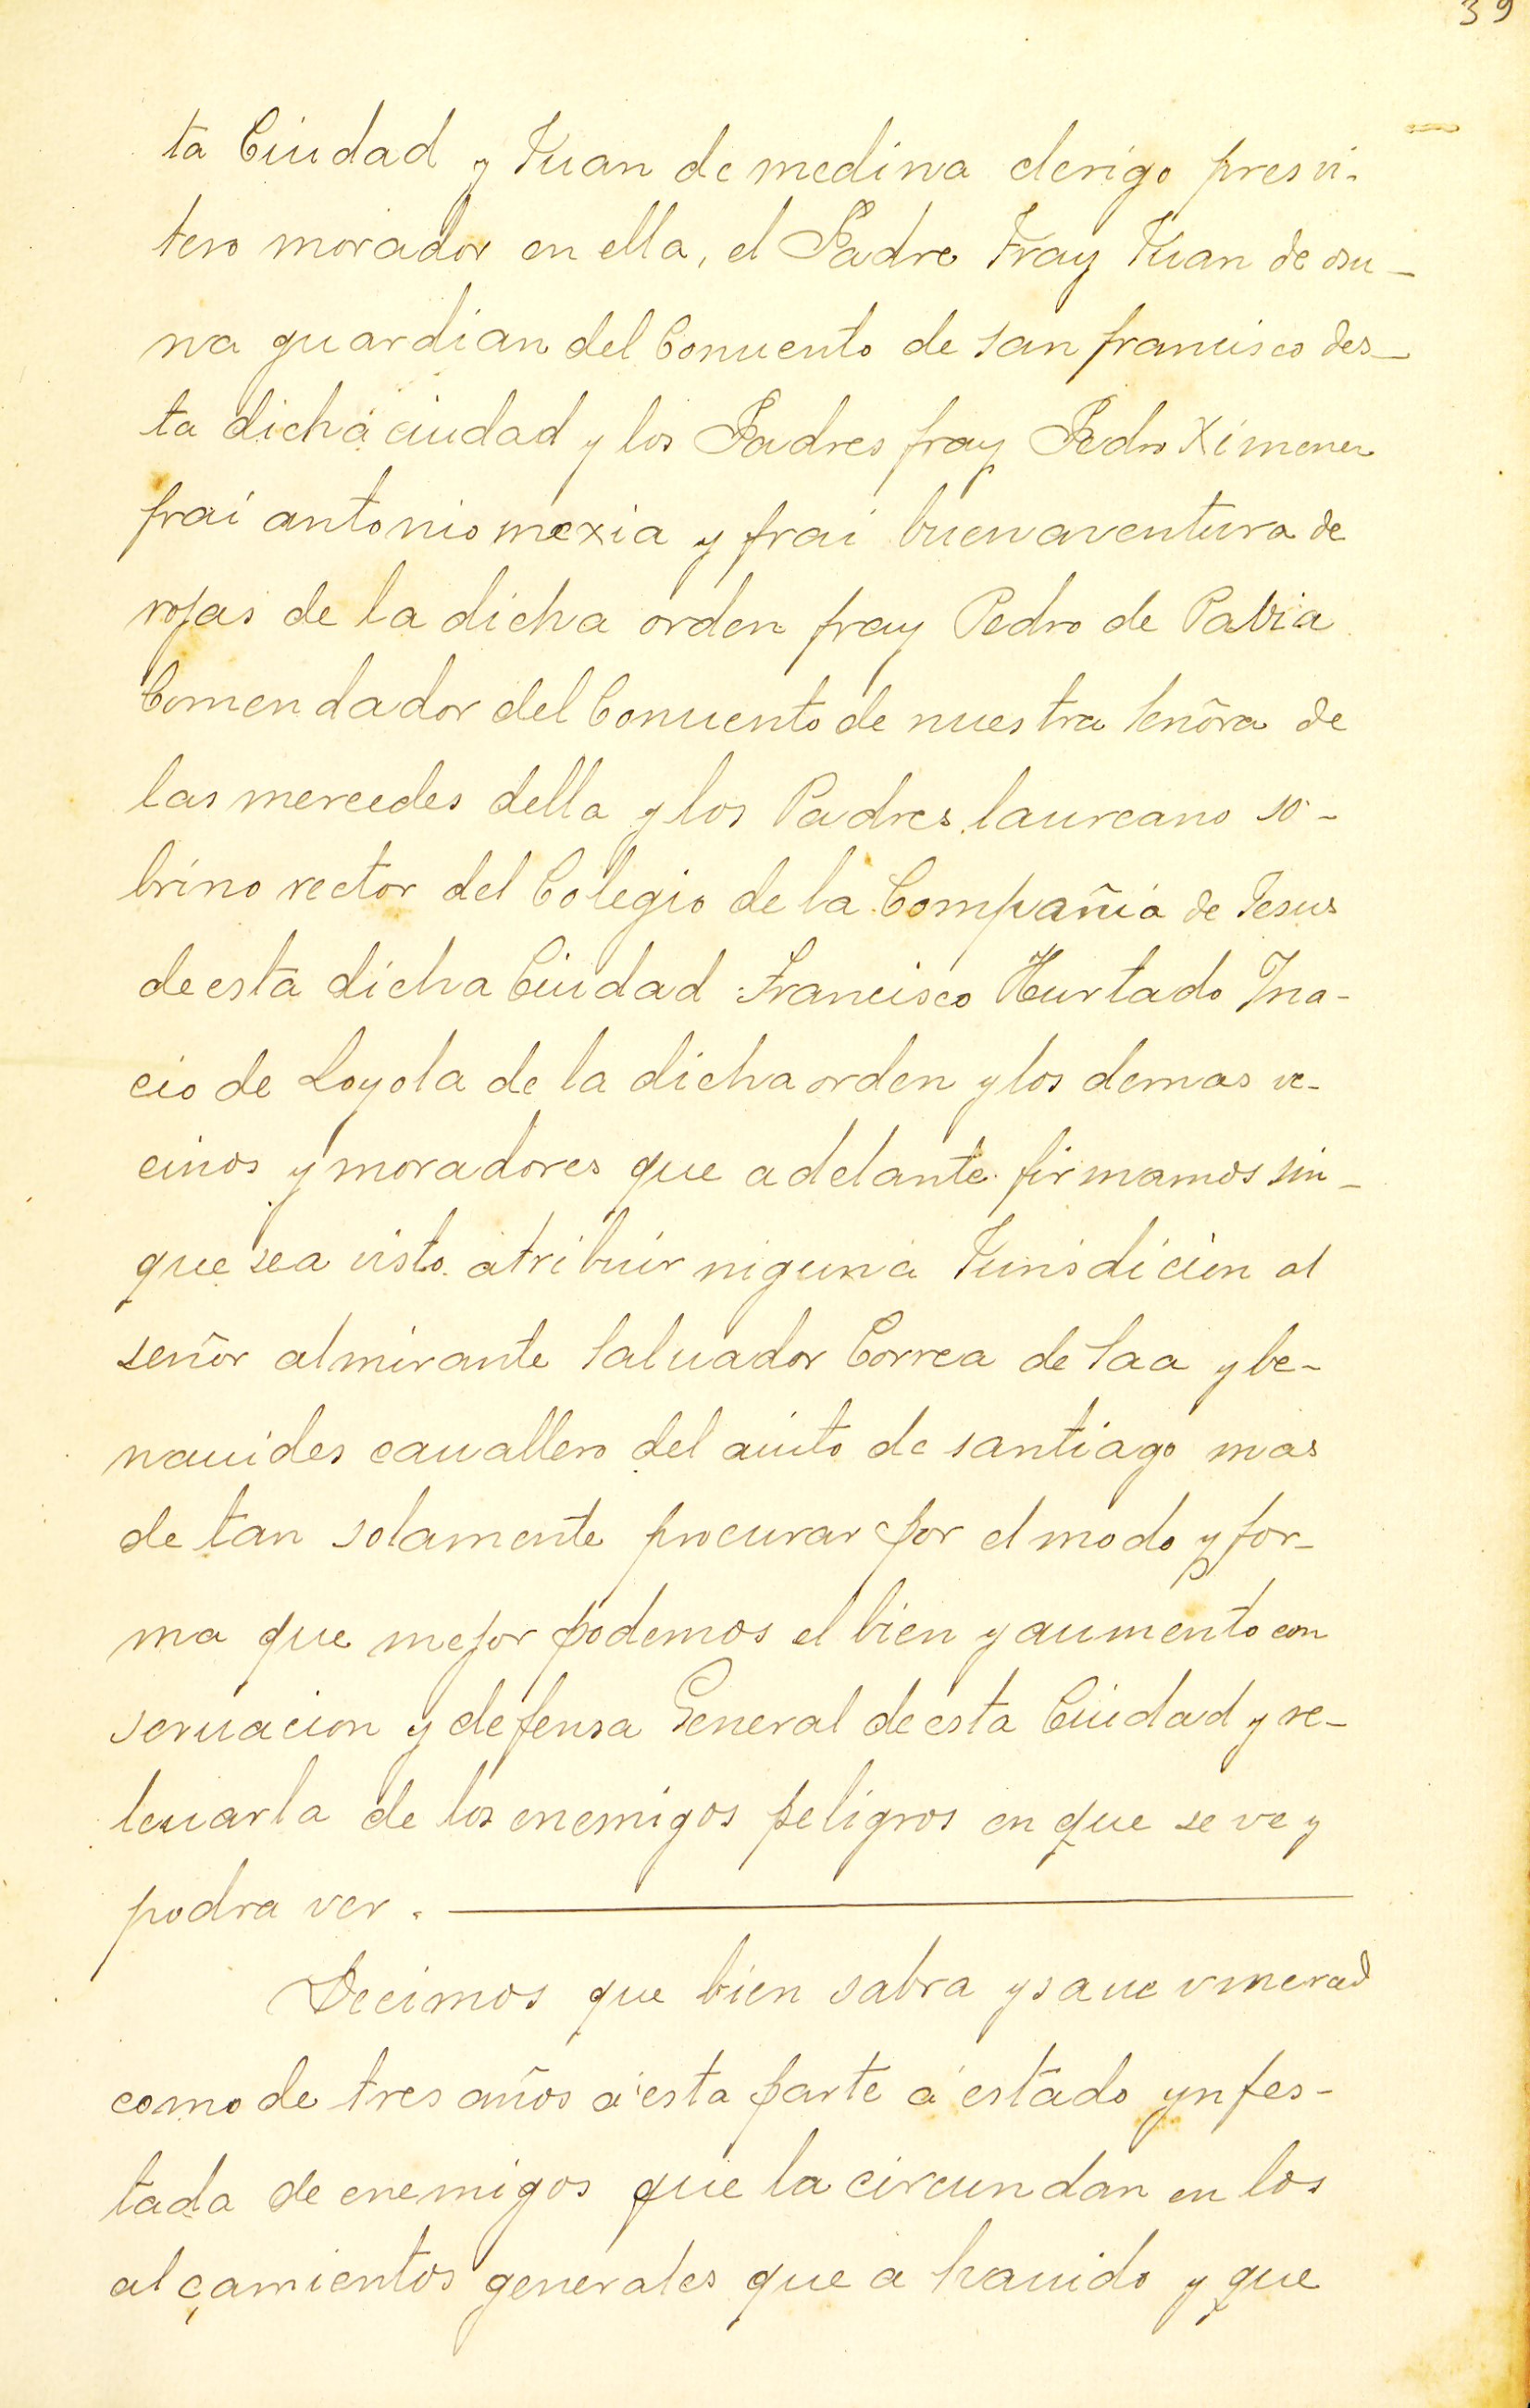 39
ta Ciudad y Juan de medina clerigo presvi-
tero morador en ella, el Padre Fray Juan de osu-
na guardian del Conuento de san francisco des-
ta dicha ciudad y los Padres fray Pedro Ximenez
frai antonio mexia y frai buenaventura de
rojas de la dicha orden fray Pedro de Pavia
Comendador del Conuento de nuestra señora de
las mercedes della y los Padres laureano so-
brino rector del Colegio de la Compañia de Jesus
de esta dicha Ciudad Francisco Hurtado Ina-
cio de Loyola de la dicha orden y los demas ve-
cinos y moradores que adelante firmamos sin-
que sea visto atribuir niguna Jurisdicion al
señor almirante Saluador Correa de Saa y be-
nauides cauallero del auito de santiago mas
de tan solamente procurar por el modo y for-
ma que mejor podemos el bien y aumento con
seruacion y defensa General de esta Ciudad y re-
leuarla de los enemigos peligros en que se ve y
podra ver.
Decimos que bien sabra y saue vmerced
como de tres años á esta parte á estado ynfes-
tada de enemigos que la circundan en los
alçamientos generales que a hauido y que